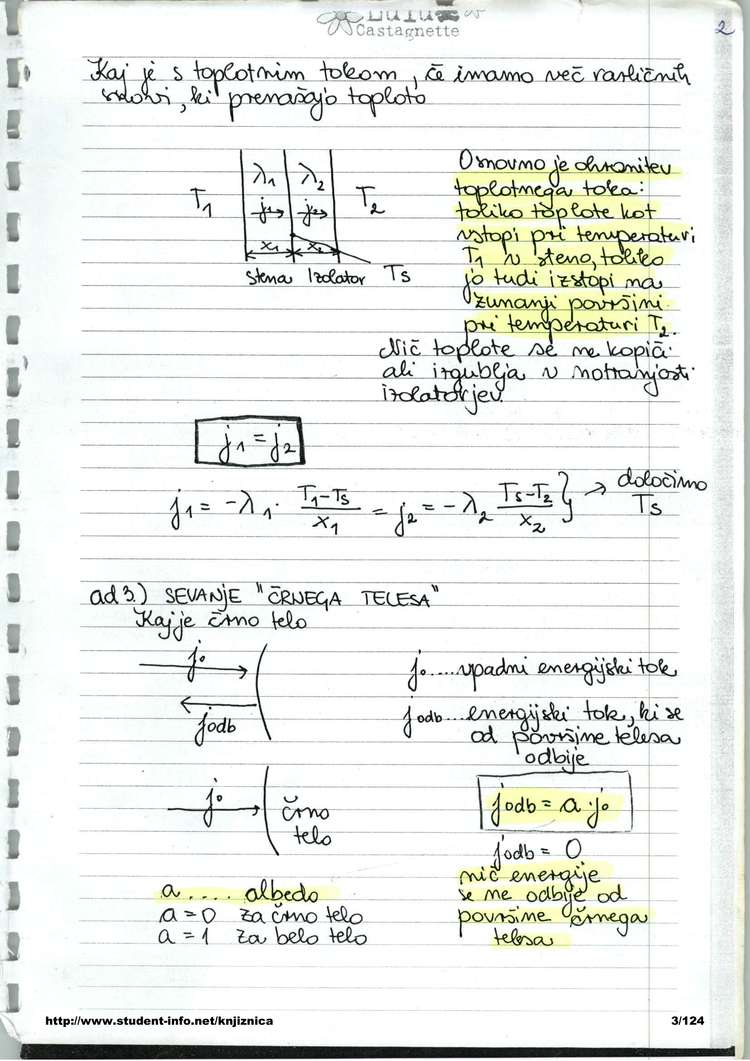 Lulu
Castagnette
2
Kaj je s toplotnim tokom, če imamo več različnih
snovi, ki prenašajo toploto
T1 λ1 λ2 T2
j1 j2
x1 x2
stena Izolator Ts
Osnovno je ohranitev
toplotnega toka:
toliko toplote kot
vstopi pri temperaturi
T1 v steno, toliko
jo tudi izstopi na
zunanji površini
pri temperaturi T2.
Nič toplote se ne kopiči
ali izgublja v notranjosti
izolatorjev.
j1 = j2
j1 = -λ1 · (T1-Ts)/x1 = j2 = -λ2 (Ts-T2)/x2 } → določimo Ts
ad 3.) SEVANJE "ČRNEGA TELESA"
Kaj je črno telo
j0
jodb
j0.....vpadni energijski tok
jodb...energijski tok, ki se
od površine telesa
odbije
j0 črno
telo
jodb = a · j0
jodb = 0
nič energije
se ne odbije od
površine črnega
telesa
a .... albedo
a = 0 za črno telo
a = 1 za belo telo
http://www.student-info.net/knjiznica
3/124